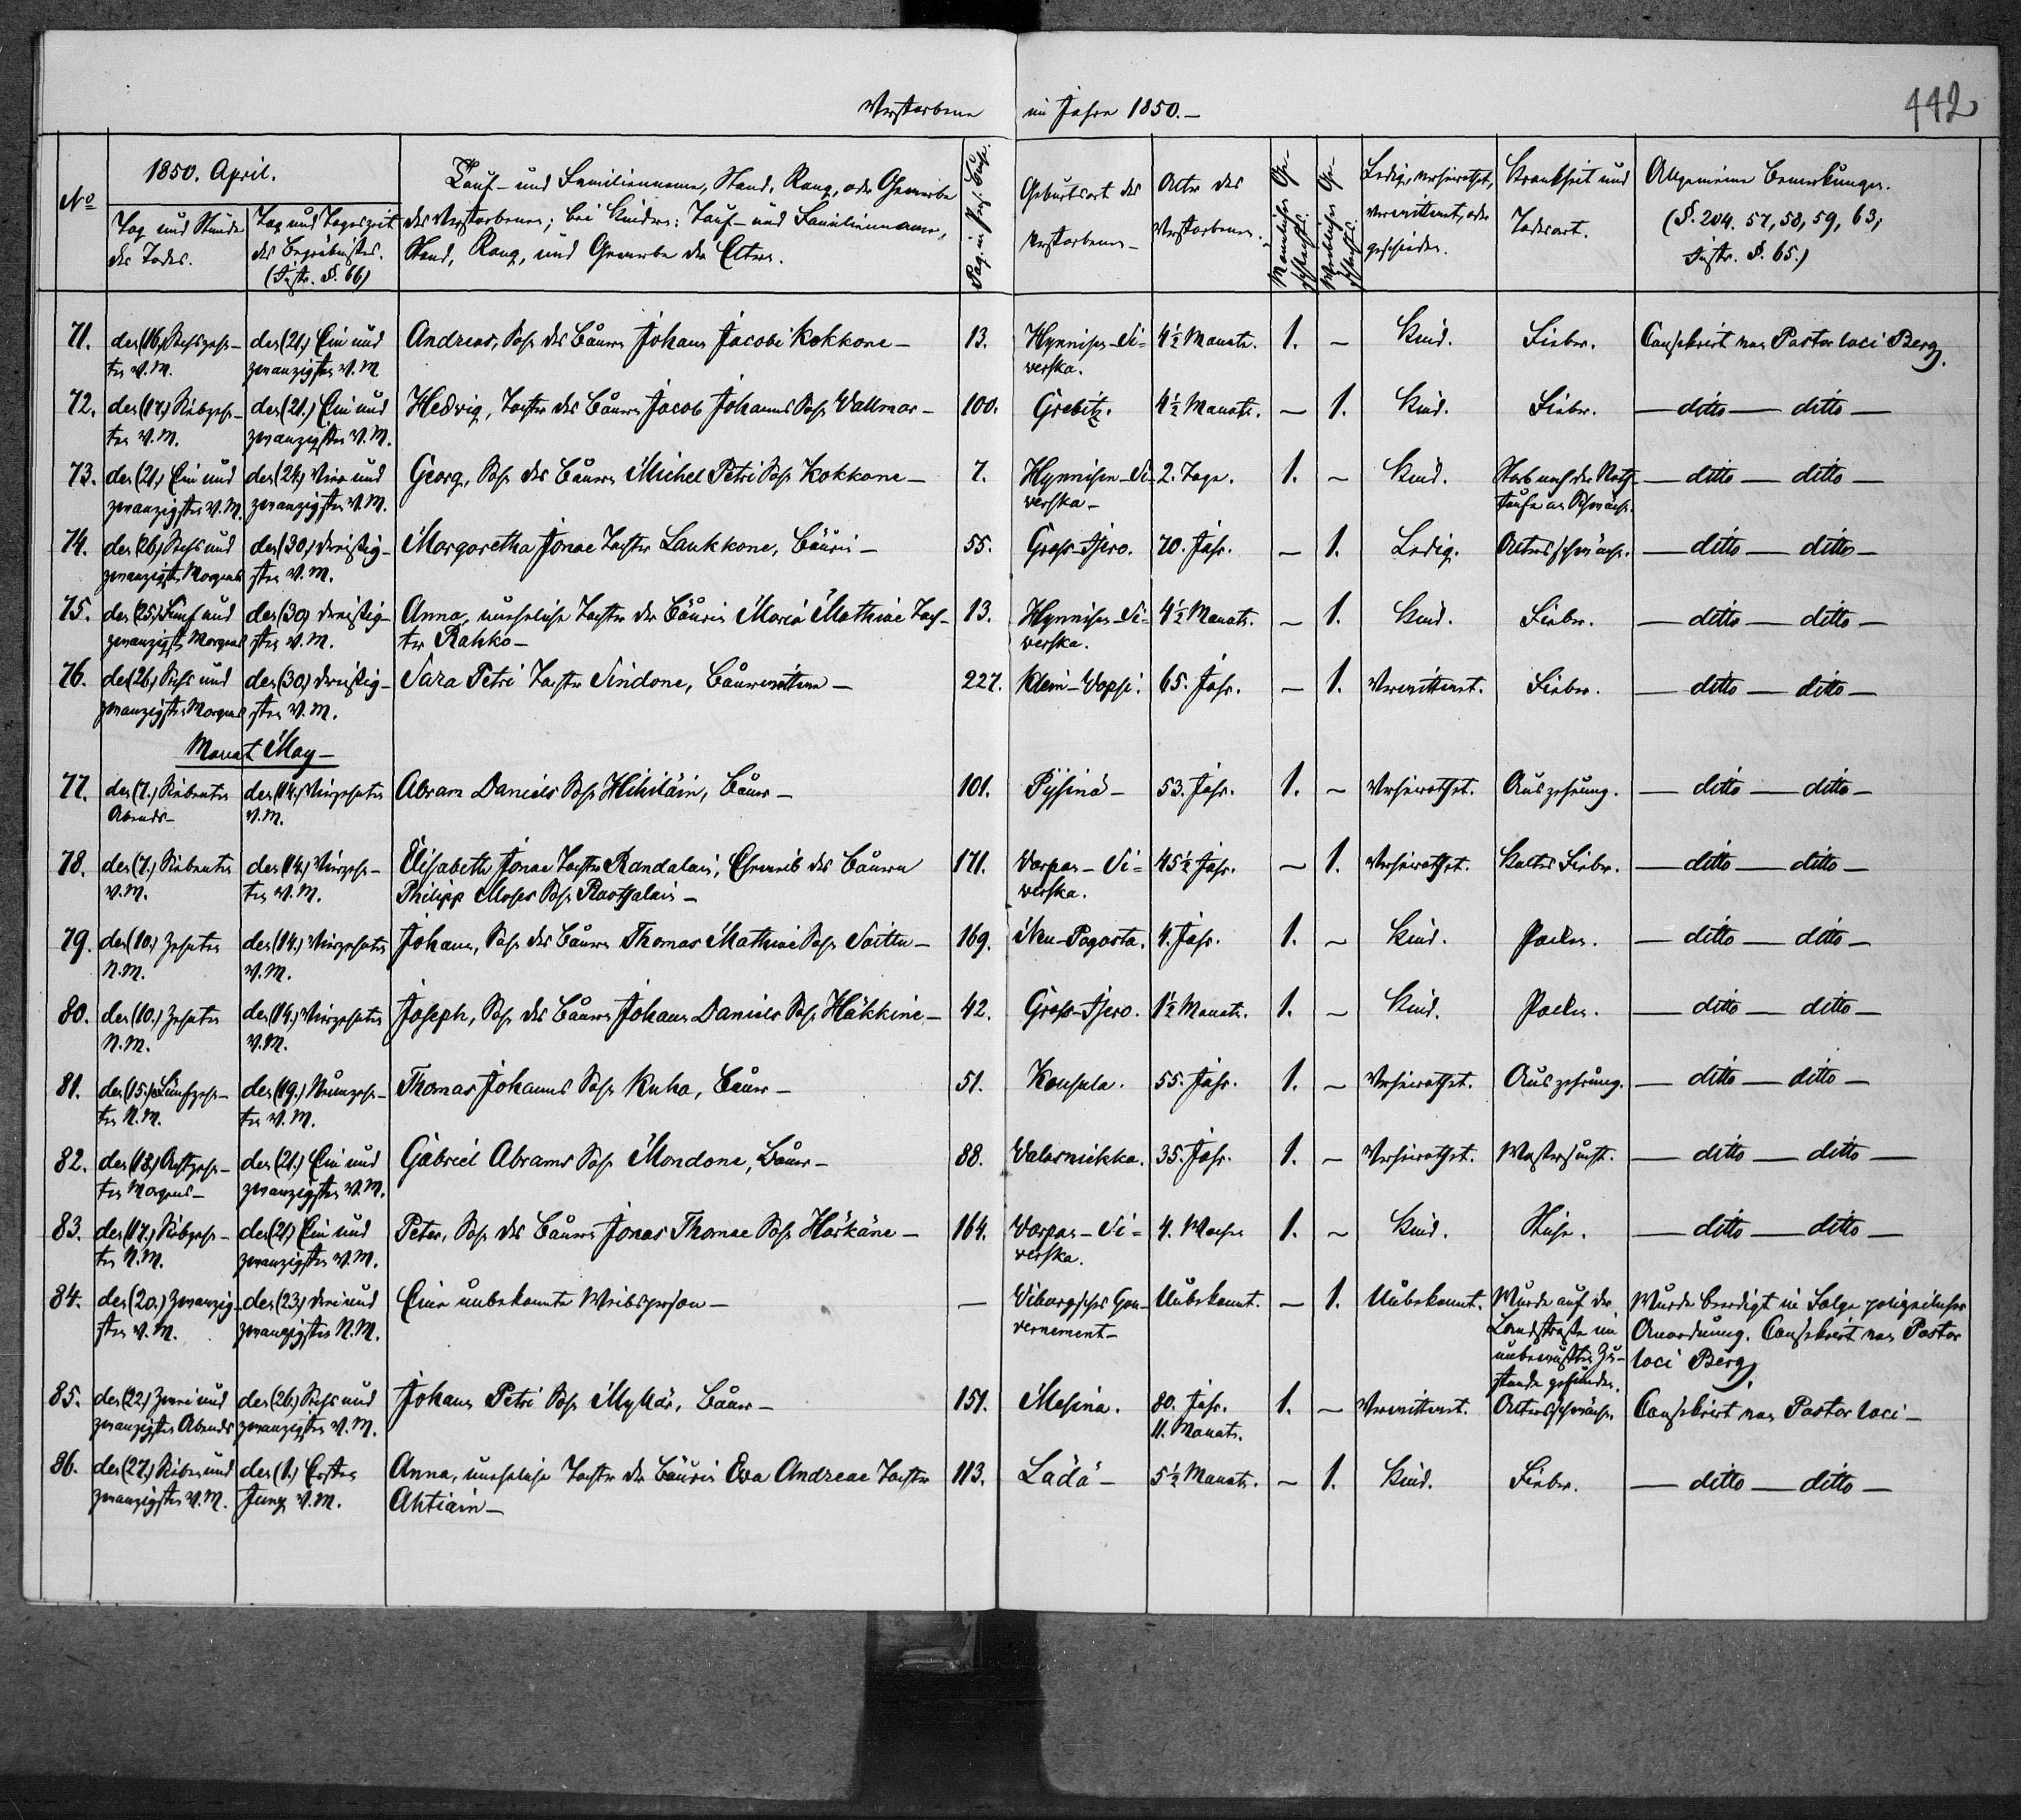 Verstorbene im Jahre 1850. —
442
No
1850. April.
Tag und Stunde des Todes.
Tag und Tageszeit des Begräbnisses. (Instr. §. 66)
Tauf- und Familienname, Stand, Rang, oder Gewerbe
des Verstorbenen; bei Kindern: Tauf- und Familienname,
Stand, Rang, und Gewerbe der Eltern.
Pag. in Pers. Buch.
Geburtsort des Verstorbenen —
Alter des Verstorbenen.
Männlichen Geschlechts.
Weiblichen Geschlechts.
Ledig, verheirathet, verwittwet, oder geschieden.
Krankheit und Todesart.
Allgemeine Bemerkungen.
(§. 204. 57, 58, 59, 63,
Instr. §. 65.)
71. den (16,) Sechszehn- den (21,) Ein und Andreas, Sohn des Bauern Johann Jacobi Kokkone — 13. Hynnisen-Si= 4½ Monate. 1. — Kind. Fieber. Consekrirt von Pastor loci Berg.
ten V. M. zwanzigsten V. M. werska.
72. den (17.) Siebzehn- den (21.) Ein und Hedwig, Tochter des Bauern Jacob Johanns Sohn Wallmar — 100. Grebitz. 4½ Monate. — 1. Kind. Fieber. — ditto — ditto —
ten V. M. zwanzigsten V. M.
73. den (21,) Ein und den (24,) Vier und Georg, Sohn des Bauern Michel Petri Sohn Kokkone — 7. Hynnisen-Si- 2. Tage. 1. — Kind. Starb nach der Noth- — ditto — ditto —
zwanzigsten V. M. zwanzigsten V. M. werska — taufe an Schwäche.
74. den (26,) Sechs und den (30,) dreißig- Margaretha Jonae Tochter Laukkone, Bäurin — 55. Gross-Isero. 70. Jahr. — 1. Ledig. Altersschwäche. — ditto — ditto —
zwanzigsten Morgens sten V. M.
75. den (25.) Fünf und den (30) dreißig- Anna, uneheliche Tochter der Bäurin Maria Mathiae Toch- 13. Hynnisen-Si- 4½ Monate. — 1. Kind. Fieber. — ditto — ditto —
zwanzigsten Morgens sten V. M. ter Rahko — werska.
76. den (26,) Sechs und den (30,) dreißig- Sara Petri Tochter Sindone, Bauerwittwe — 227. Klein-Wopsi. 65. Jahr. — 1. Verwittwet. Fieber. — ditto — ditto —
zwanzigsten Morgens sten V. M.
Monat May —
77. den (7.) Siebenten den (14.) Vierzehnten Abram Daniels Sohn Hihiläin, Bauer — 101. Pÿsinä — 53. Jahr. 1. — Verheirathet. Auszehrung. — ditto — ditto —
Abends — V. M.
78. den (7.) Siebenten den (14.) Vierzehn- Elisabeth Jonae Tochter Randalain, Eheweib des Bauern 171. Warpas-Si= 45½ Jahr. — 1. Verheirathet. Kaltes Fieber. — ditto — ditto —
V. M. ten V. M. Philipp Moses Sohn — werska.
79. den (10.) Zehnten den (14.) Vierzehnten Johann, Sohn des Bauern Thomas Mathiae Sohn Soittu — 169. Neu-Pogosta. 4. Jahr. 1. — Kind. Pocken. — ditto — ditto —
N. M. V. M.
80. den (10.) Zehnten den (14.) Vierzehnten Joseph, Sohn des Bauern Johann Daniels Sohn Häkkine — 42. Gross-Isero. 1½ Monate. 1. — Kind. Pocken. — ditto — ditto —
N. M. V. M.
81. den (15.) Fünfzehn- den (19.) Neunzehn- Thomas Johanns Sohn Kuha, Bauer — 51. Konsula. 55. Jahr. 1. — Verheirathet. Auszehrung. — ditto — ditto —
ten N. M. ten V. M.
82. den (18.) Achtzehn- den (21.) Ein und Gabriel Abrams Sohn Mondone, Bauer — 88. Walasnickka. 35. Jahr. 1. — Verheirathet. Wassersucht. — ditto — ditto —
ten Morgens — zwanzigsten V. M.
83. den (17.) Siebzehn- den (21) Ein und Peter, Sohn des Bauern Jonas Thomae Sohn Härkäne — 164. Warpas-Si= 4. Wochen 1. — Kind. — ditto — ditto —
ten N. M. zwanzigsten V. M. werska.
84. den (20.) Zwanzig- den (23,) drei und Eine unbekannte Weibsperson — — Wiborgsches Gou- Unbekannt. — 1. Unbekannt. Wurde auf der Wurde beerdigt in Folge polizeilicher
sten V. M. zwanzigsten N. M. vernement — Landstraße im Anordnung. Consekrirt von Pastor
unbewußten Zu- loci Berg.
stande gefunden.
85. den (22.) Zwei und den (26.) Sechs und Johann Petri Sohn Myllär, Bauer — 151. Mesina. 80. Jahr. 1. — Verwittwet. Altersschwäche. Consekrirt von Pastor loci —
zwanzigsten Abends zwanzigsten V. M. 11. Monate.
86. den (27.) Sieben und den (1.) Ersten Anna, uneheliche Tochter der Bäurin Eva Andreae Tochter 113. Lädä — 5½ Monate. — 1. Kind. Fieber. — ditto — ditto —
zwanzigsten V. M. Juny V. M. Ahtiain —